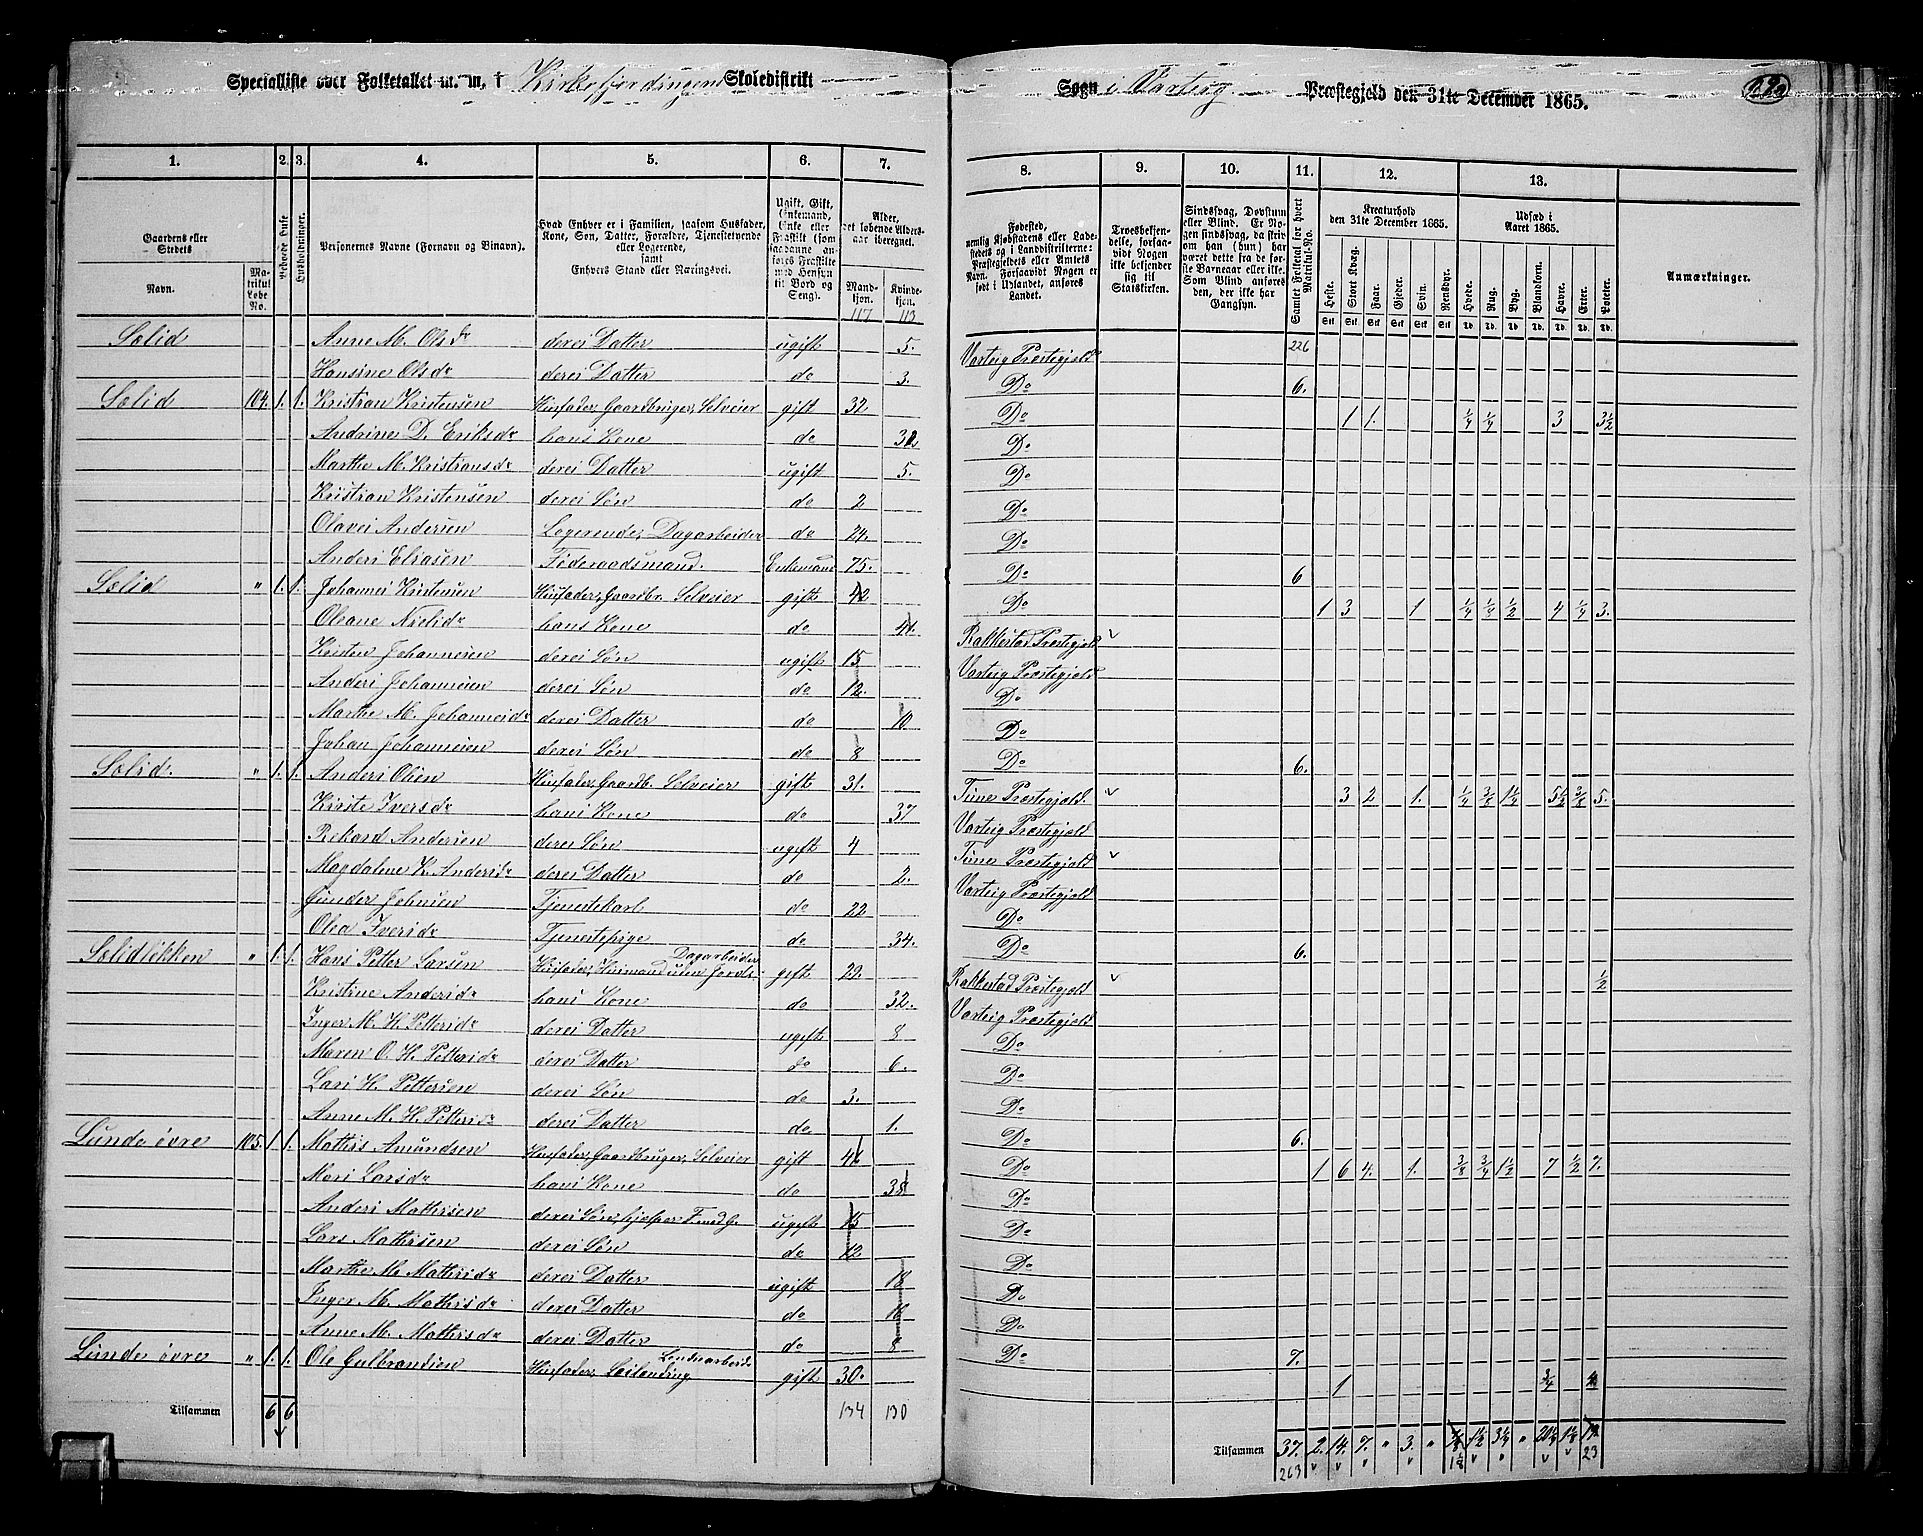 Specialliste over Folketallet m. m. i Kirkefjerdingens Skoledistrikt
Sogn i Varteig Præstegjeld den 31te December 1865.
1. 2. 3. 4. 5. 6. 7.
8. 9. 10. 11. 12. 13.
Gaardens eller Stedets
Navn.
Matrikul Løbe No.
Beboede Huse
Husholdninger.
Personernes Navne (Fornavn og Binavn).
Hvad Enhver er i Familien, saasom Husfader, Kone, Søn, Datter, Forældre, Tjenestetyende eller Logerende, samt Enhvers Stand eller Næringsvei.
Ugift, Gift, (Enkemand, Enke) eller Fraskilt (som saadanne anføres Fraskilte med Hensyn til Bord og Seng).
Alder, det løbende Alders-aar iberegnet.
Mandkjøn. Kvindekjøn.
117 113
Fødested, nemlig Kjøbstadens eller Ladestedets og i Landdistrikterne: Præstegjeldets eller Amtets Navn. Forsaavidt Nogen er født i Udlandet, anføres Landet.
Troesbekjendelse, forsaavidt Nogen ikke bekjender sig til Statskirken.
Sindssvag, Døvstum eller Blind. Er Nogen sindssvag, da skrives om han (hun) har været dette fra de første Barneaar eller ikke. Som Blind anføres den, der ikke har Gangsyn.
Samlet Folketal for hvert Matrikul-No.
Kreaturhold den 31te December 1865.
Heste. Stort Kvæg. Faar. Gjeder. Svin. Rensdyr.
Udsæd i Aaret 1865.
Hvede. Rug. Byg. Blandkorn. Havre. Erter. Poteter.
Anmærkninger.
Solid Anne M. Olsdr deres Datter ugift 5. Varteig Præstegjeld 226
Hansine Olsdr deres Datter do 3. Do 6.
Solid 104. 1. 1. Kristian Kristensen Husfader, Gaardbruger, Selveier gift 32 Do 1 1. 1/4 1/4 3 3 1/2
Andrine D. Eriksdr hans Kone do Do
Marthe M. Kristiansdr deres Datter ugift 5. Do
Kristian Kristensen deres Søn do 2 Do
Olaves Andersen Logerende, Dagarbeider do 24. Do
Anders Eliasen Føderaadsmand. Enkemand 75. Do 6
Solid " 1. 1. Johannes Kristensen Husfader, Gaardbr. Selveier gift 42 Do 1 3 1 1/4 1/2 4 1/4 3.
Oleane Nielsdr hans Kone do 41. Rakkestad Præstegjeld
Kristen Johannesen deres Søn ugift 15 Varteig Præstegjeld
Anders Johannesen deres Søn do 12. Do
Marthe M. Johannesdr deres Datter do 10 Do
Johan Johannesen deres Søn do 8 Do 6.
Solid. " 1. 1. Anders Olsen Husfader, Gaardb. Selveier gift 31. Tune Præstegjeld. 3 2 1. 1/4 3/8 1 1/4 5 1/2 3/8 5.
Kirste Iversdr hans Kone do 37 Varteig Præstegjeld
Rikard Andersen deres Søn ugift 4 Tune Præstegjeld
Magdalene K. Andersdr deres Datter do 2. Varteig Præstegjeld
Gunder Johnsen Tjenestekarl do 22 Do
Olea Iversdr Tjenestepige do 34. Do 6.
Solidløkken " 1. 1. Hans Petter Larsen Husfader, Husmand uden Jord. Dagarbeider gift 29. Rakkestad Præstegjeld 1/2
Kristine Andersdr hans Kone do 32. Varteig Præstegjeld
Inger M. H. Pettersdr deres Datter ugift 8 Do
Maren O. H. Pettersdr deres Datter do 6. Do
Lars H. Pettersen deres Søn do 3. Do
Anne M. H. Pettersdr deres Datter do 1. Do 6.
Lunde øvre 105. 1. 1. Mathis Amundsen Husfader, Gaardbruger, Selveier gift Do 1 6 4. 1. 3/8 3/4 1 1/2 7 1/2 7.
Mari Larsdr hans Kone do 38 Do
Anders Mathisen deres Søn, hjelper F. med G. ugift 15 Do
Lars Mathisen deres Søn do 12 Do
Marthe M. Mathisdr deres Datter ugift 18 Do
Inger M. Mathisdr deres Datter do 16 Do
Anne M. Mathisdr deres Datter do 8 Do 7.
Lunde øvre " 1. 1. Ole Gulbrandsen Husfader, gift 30. 1 3/4 4
Tilsammen 6 6 134 130
Tilsammen 37. 2. 14. 7. " 3. " 7/8 1 1/2 3 1/4 " 20 1/4 1 5/8 19
263 1 1/8 23